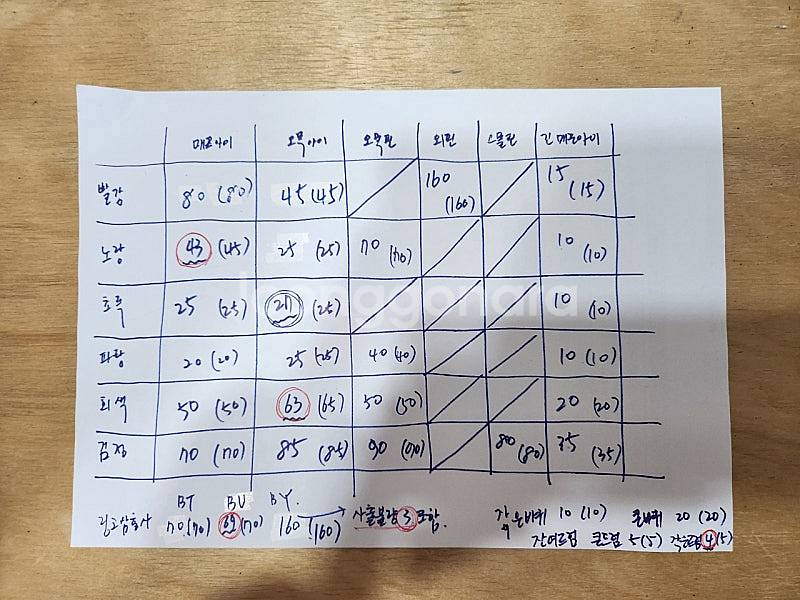 매포아이 오목아이 오목핀 외핀 스몰핀 긴 매포아이
빨강 80 (80) 45 (45) 160 (160) 15 (15)
노랑 43 (45) 25 (25) 70 (70) 10 (10)
초록 25 (25) (25) 10 (10)
파랑 20 (20) 25 (25) 40 (40) 10 (10)
회색 50 (50) 63 (65) 50 (50) 20 (20)
검정 70 (70) 85 (85) 90 (90) 80 (80) 35 (35)
BT BU BY.
70 (70) 69 (70) 160 (160) 사출불량 3 포함. 작은바퀴 10 (10) 큰바퀴 20 (20)
5 (5) 4 (5)
joonggonara